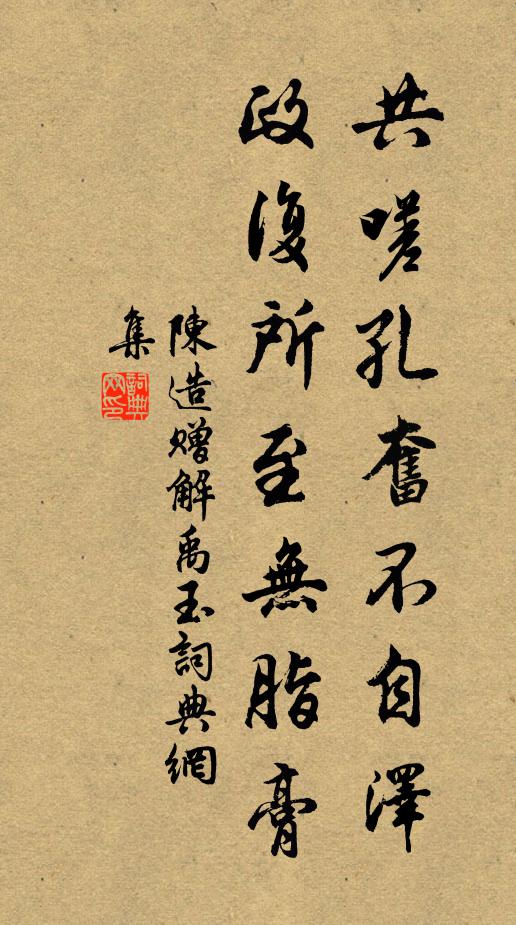 共嗟孔奮不自澤
政復所至無脂膏
陳造贈解禹玉詞典網
集
詞典網印